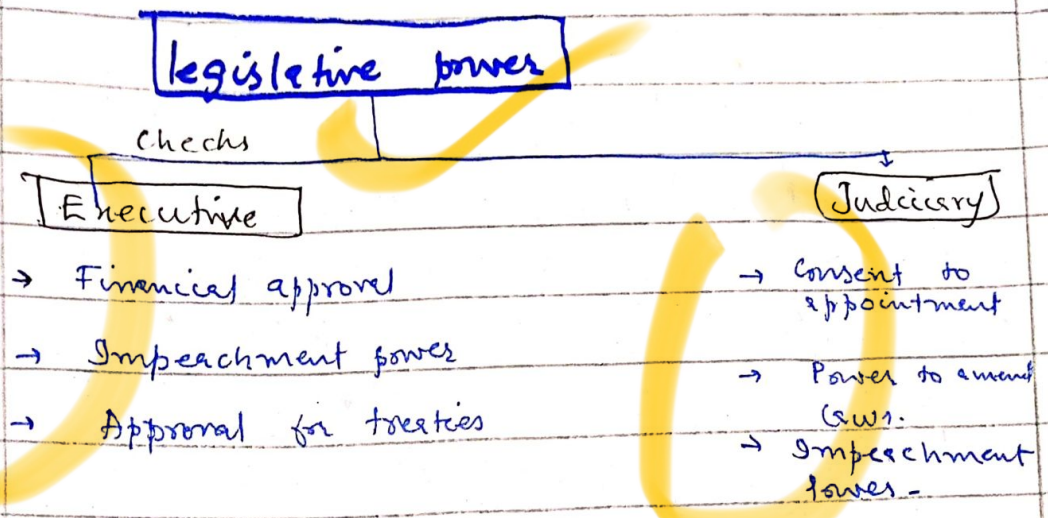 legislative power
Checks
Executive
Judiciary
→ Financial approval
→ Impeachment power
→ Approval for treaties
→ Consent to
appointment
→ Power to amend
laws.
→ Impeachment
Power -